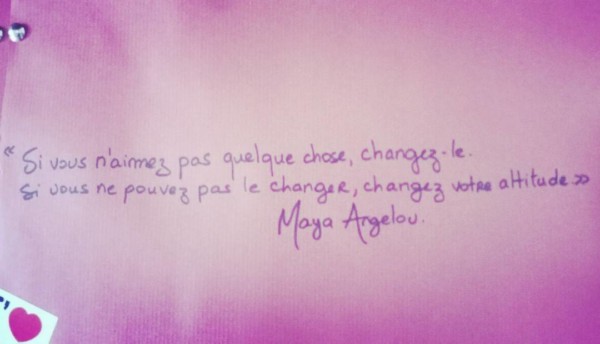 « Si vous n'aimez pas quelque chose, changez-le.
Si vous ne pouvez pas le changer, changez votre attitude »
Maya Angelou.